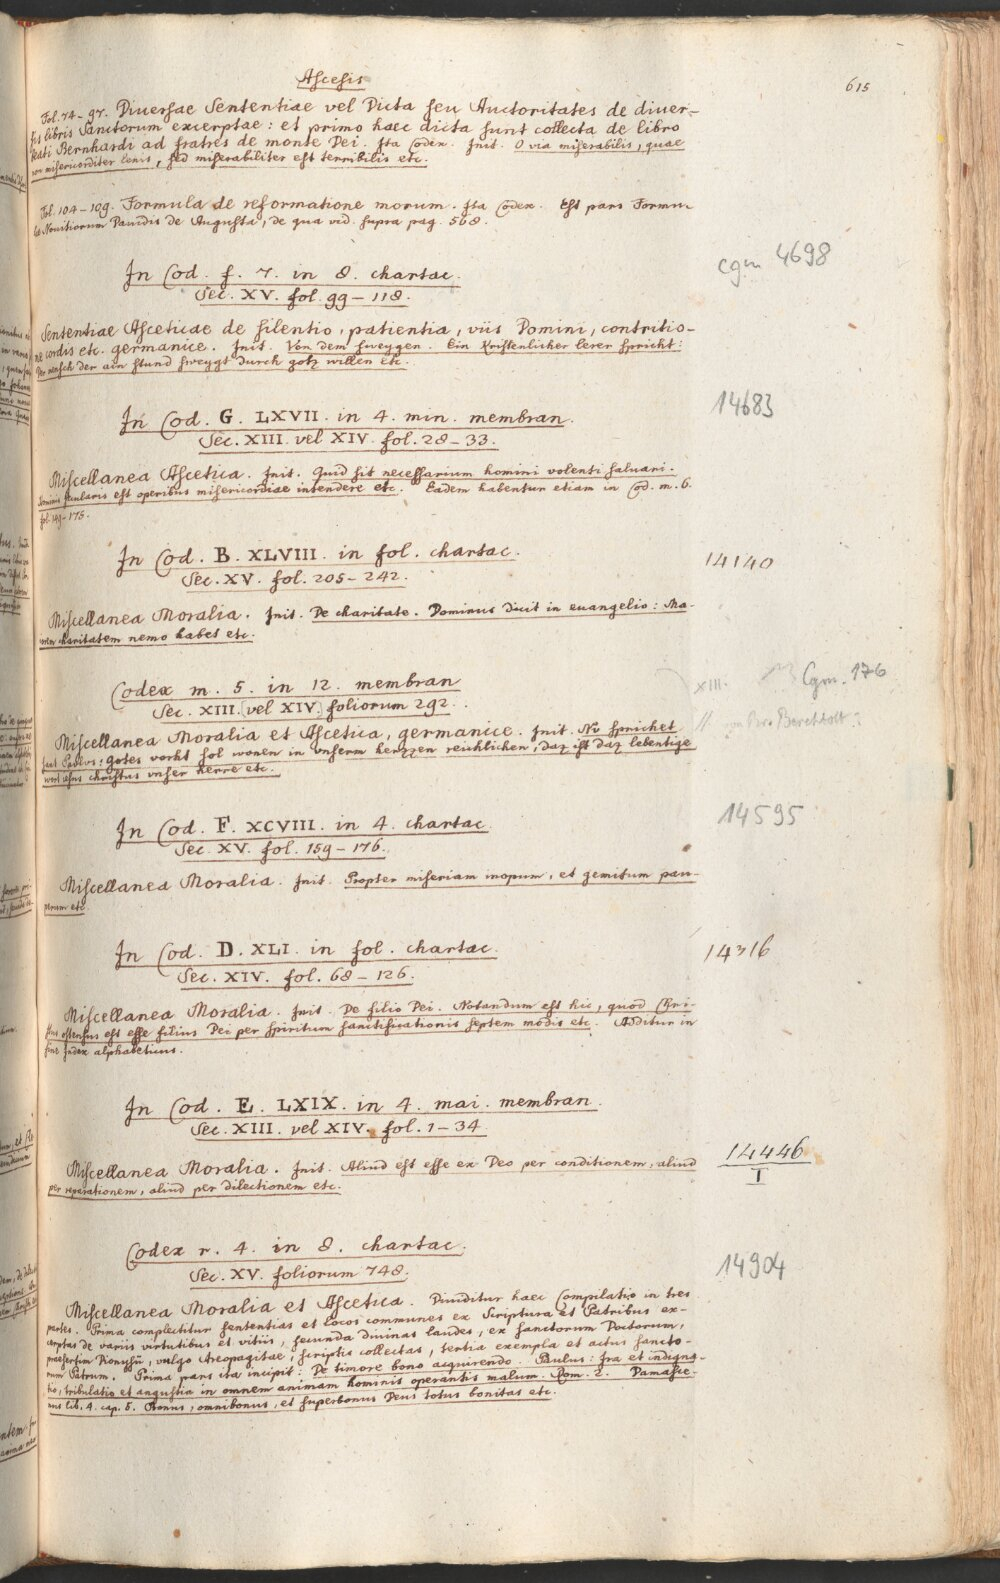 Ascesis
615
Fol. 74-97. Diuersae Sententiae vel Dicta seu Auctoritates de diuer-
sis libris Sanctorum excerptae: et primo haec dicta sunt collecta de libro
Beati Bernhardi ad fratres de monte Dei. Ita Codex. Init. O via miserabilis, quae
non misericorditer lenis, sed miserabiliter est terribilis etc.
Fol. 104-109. Formula de reformatione morum. Ita Codex. Est pars Formu-
lae Nouitiorum Dauidis de Augusta, de qua vid. supra pag. 568.
In Cod. f. 7. in 8. chartac.
cgm 4698
Sec. XV. fol. 99-118.
Sententiae Asceticae de silentio, patientia, viis Domini, contritio-
ne cordis etc. germanice. Init. Von dem sweygen. Ein kristenlicher lerer spricht:
Der mensch der ain stund sweygt durch gotz willen etc.
In Cod. G. LXVII. in 4. min. membran.
14683
Sec. XIII. vel XIV. fol. 28-33.
Miscellanea Ascetica. Init. Quid sit necessarium homini volenti saluari.
Hominis secularis est operibus misericordiae intendere etc. Eadem habentur etiam in Cod. m. 6.
fol. 149-175.
In Cod. B. XLVIII. in fol. chartac.
14140
Sec. XV. fol. 205-242.
Miscellanea Moralia. Init. De charitate. Dominus dicit in euangelio: Ma-
iorem charitatem nemo habet etc.
Codex m. 5. in 12. membran
XIII. Cgm. 176
Sec. XIII. [vel XIV.] foliorum 292.
von Bro Berchtolt
Miscellanea Moralia et Ascetica, germanice. Init. Nv sprichet
sant Pavlvs: gotes vorht sol wonen in vnserm herzzen reichlichen, daz ist daz lebentige
wort iesus christus vnser herre etc.
In Cod. F. XCVIII. in 4. chartac
14595
Sec. XV. fol. 159-176.
Miscellanea Moralia. Init. Propter miseriam inopum, et gemitum pau-
perum etc.
In Cod. D. XLI. in fol. chartac.
14316
Sec. XIV. fol. 68-126.
Miscellanea Moralia. Init. De filio Dei. Notandum est hic, quod Chri-
stus ostensus est esse filius Dei per spiritum sanctificationis septem modis etc. Additur in
fine Index alphabeticus.
In Cod. E. LXIX. in 4. mai. membran.
Sec. XIII. vel XIV. fol. 1-34
14446
I
Miscellanea Moralia. Init. Aliud est esse ex Deo per conditionem, aliud
per reparationem, aliud per dilectionem etc.
Codex r. 4. in 8. chartac.
14904
Sec. XV. foliorum 748.
Miscellanea Moralia et Ascetica. Diuiditur haec Compilatio in tres
partes. Prima complectitur sententias et locos communes ex Scriptura et Patribus ex-
cerptas de variis virtutibus et vitiis, secunda diuinas laudes, ex sanctorum Doctorum,
praesertim Dionysii, vulgo Areopagitae, scriptis collectas, tertia exempla et actus sancto-
rum Patrum. Prima pars ita incipit: De timore bono acquirendo. Paulus: Ira et indigna-
tio, tribulatio et angustia in omnem animam hominis operantis malum. Rom. 2. Damasce-
nus lib. 4. cap. 5. Bonus, omnibonus, et superbonus Deus totus bonitas etc.